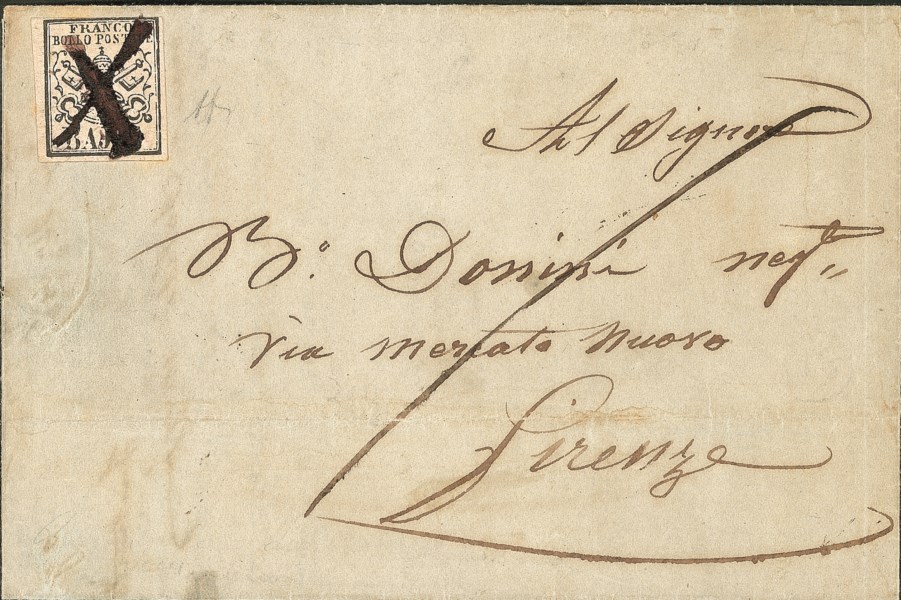 FRANCO
BOLLO POSTALE
8 BAJ
Al Signore
B.° Donnini negte
Via Mercato Nuovo
Firenze